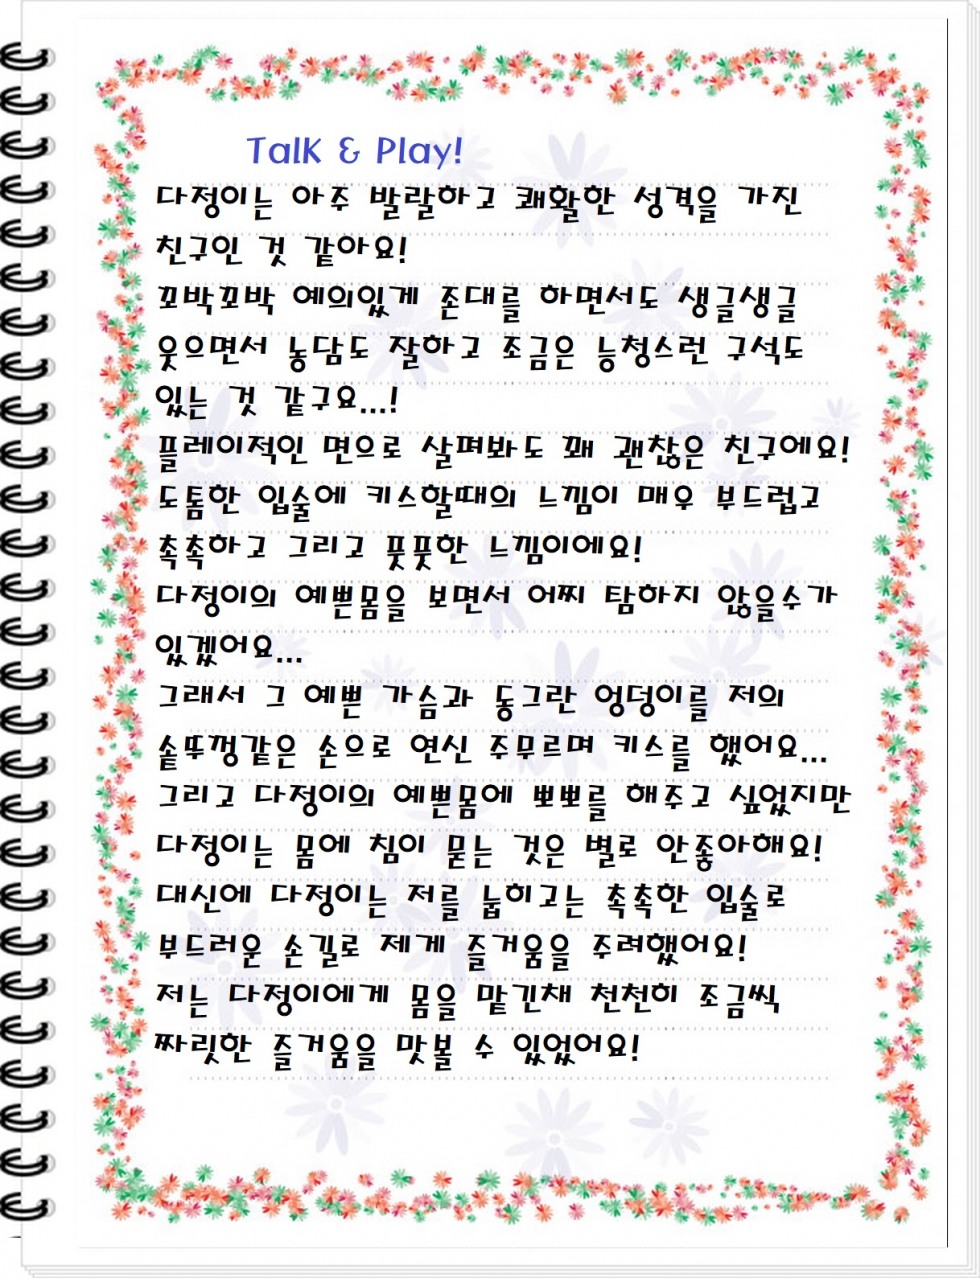 Talk & Play!
다정이는 아주 발랄하고 쾌활한 성격을 가진
친구인 것 같아요!
꼬박꼬박 예의있게 존대를 하면서도 생글생글
웃으면서 농담도 잘하고 조금은 능청스런 구석도
있는 것 같구요...!
플레이적인 면으로 살펴봐도 꽤 괜찮은 친구에요!
도톰한 입술에 키스할때의 느낌이 매우 부드럽고
촉촉하고 그리고 풋풋한 느낌이에요!
다정이의 예쁜몸을 보면서 어찌 탐하지 않을수가
있겠어요...
그래서 그 예쁜 가슴과 동그란 엉덩이를 저의
솥뚜껑같은 손으로 연신 주무르며 키스를 했어요...
그리고 다정이의 예쁜몸에 뽀뽀를 해주고 싶었지만
다정이는 몸에 침이 묻는 것은 별로 안좋아해요!
대신에 다정이는 저를 눕히고는 촉촉한 입술로
부드러운 손길로 제게 즐거움을 주려했어요!
저는 다정이에게 몸을 맡긴채 천천히 조금씩
짜릿한 즐거움을 맛볼 수 있었어요!